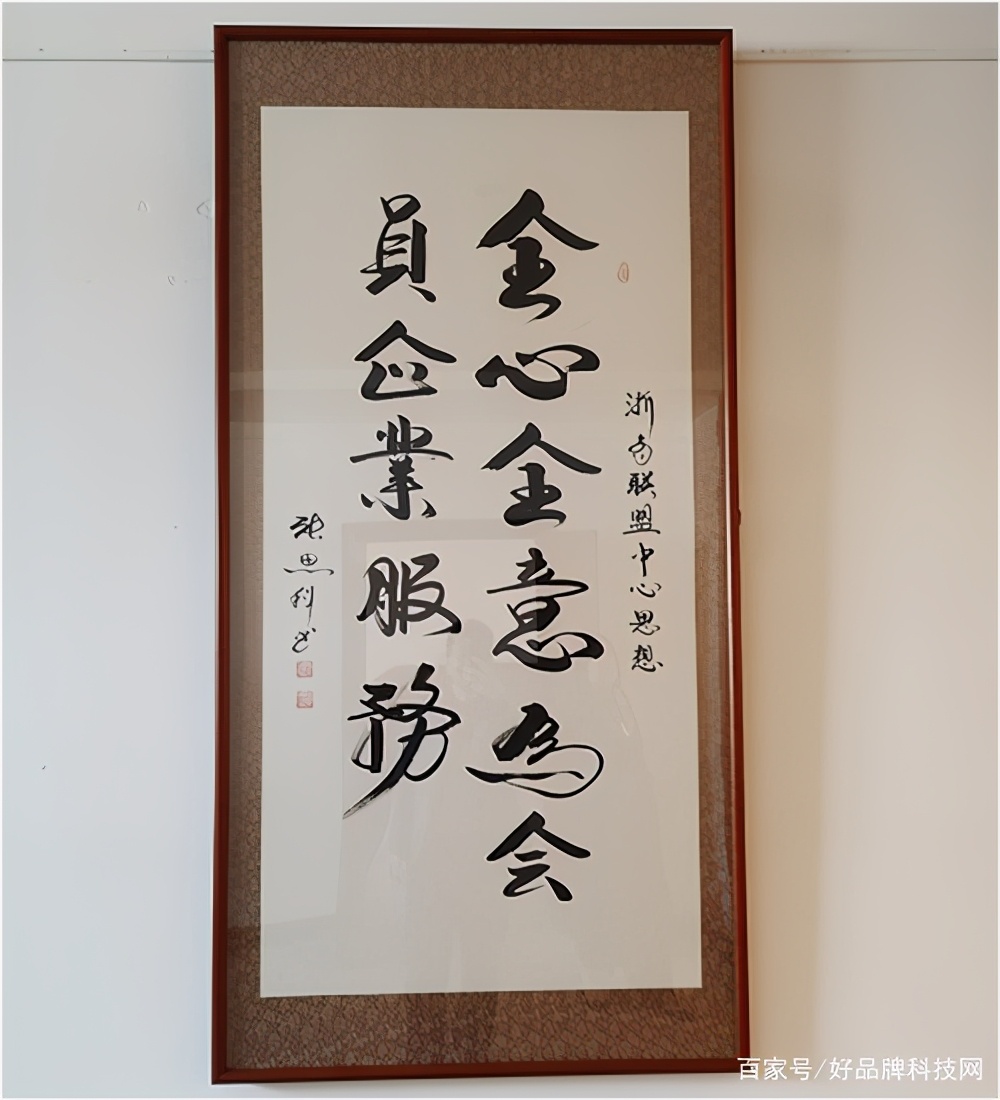 浙商联盟中心思想
全心全意為会
員企業服務
思科书
百家号/好品牌科技网